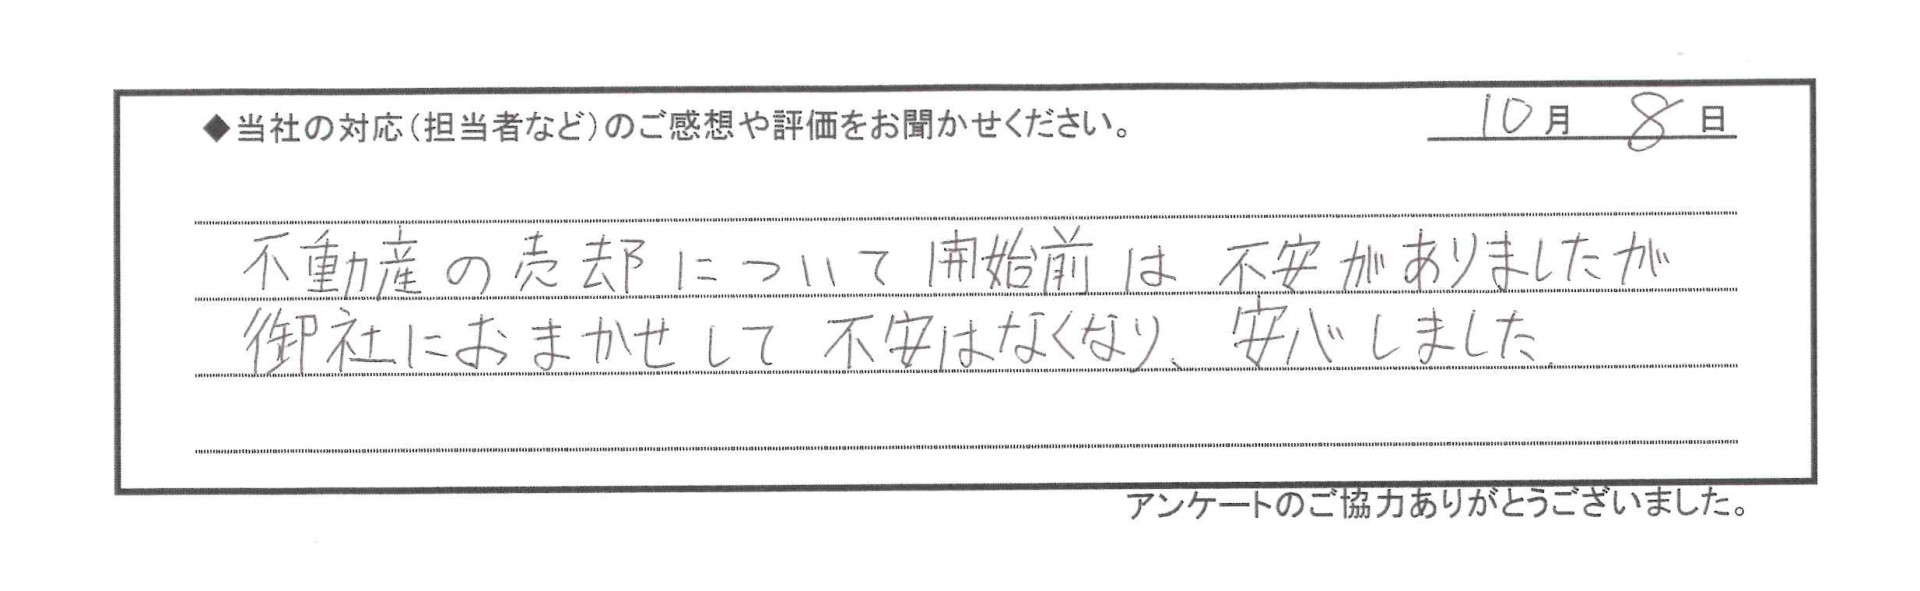 ◆当社の対応(担当者など)のご感想や評価をお聞かせください。 10月 8日
不動産の売却について開始前は不安がありましたが
御社におまかせして不安はなくなり、安心しました。
アンケートのご協力ありがとうございました。